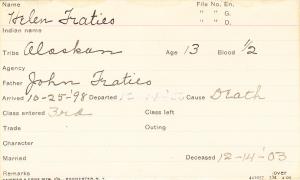 Name File No. En.
Helen Fraties " " G.
Indian name " " D.
Tribe Alaskan Age 13 Blood 1/2
Agency
Father John Fraties
Arrived 10-25-'98 Departed Cause Death
Class entered 3rd Class left
Trade Outing
Character
Married Deceased 12-14-'03
Remarks over